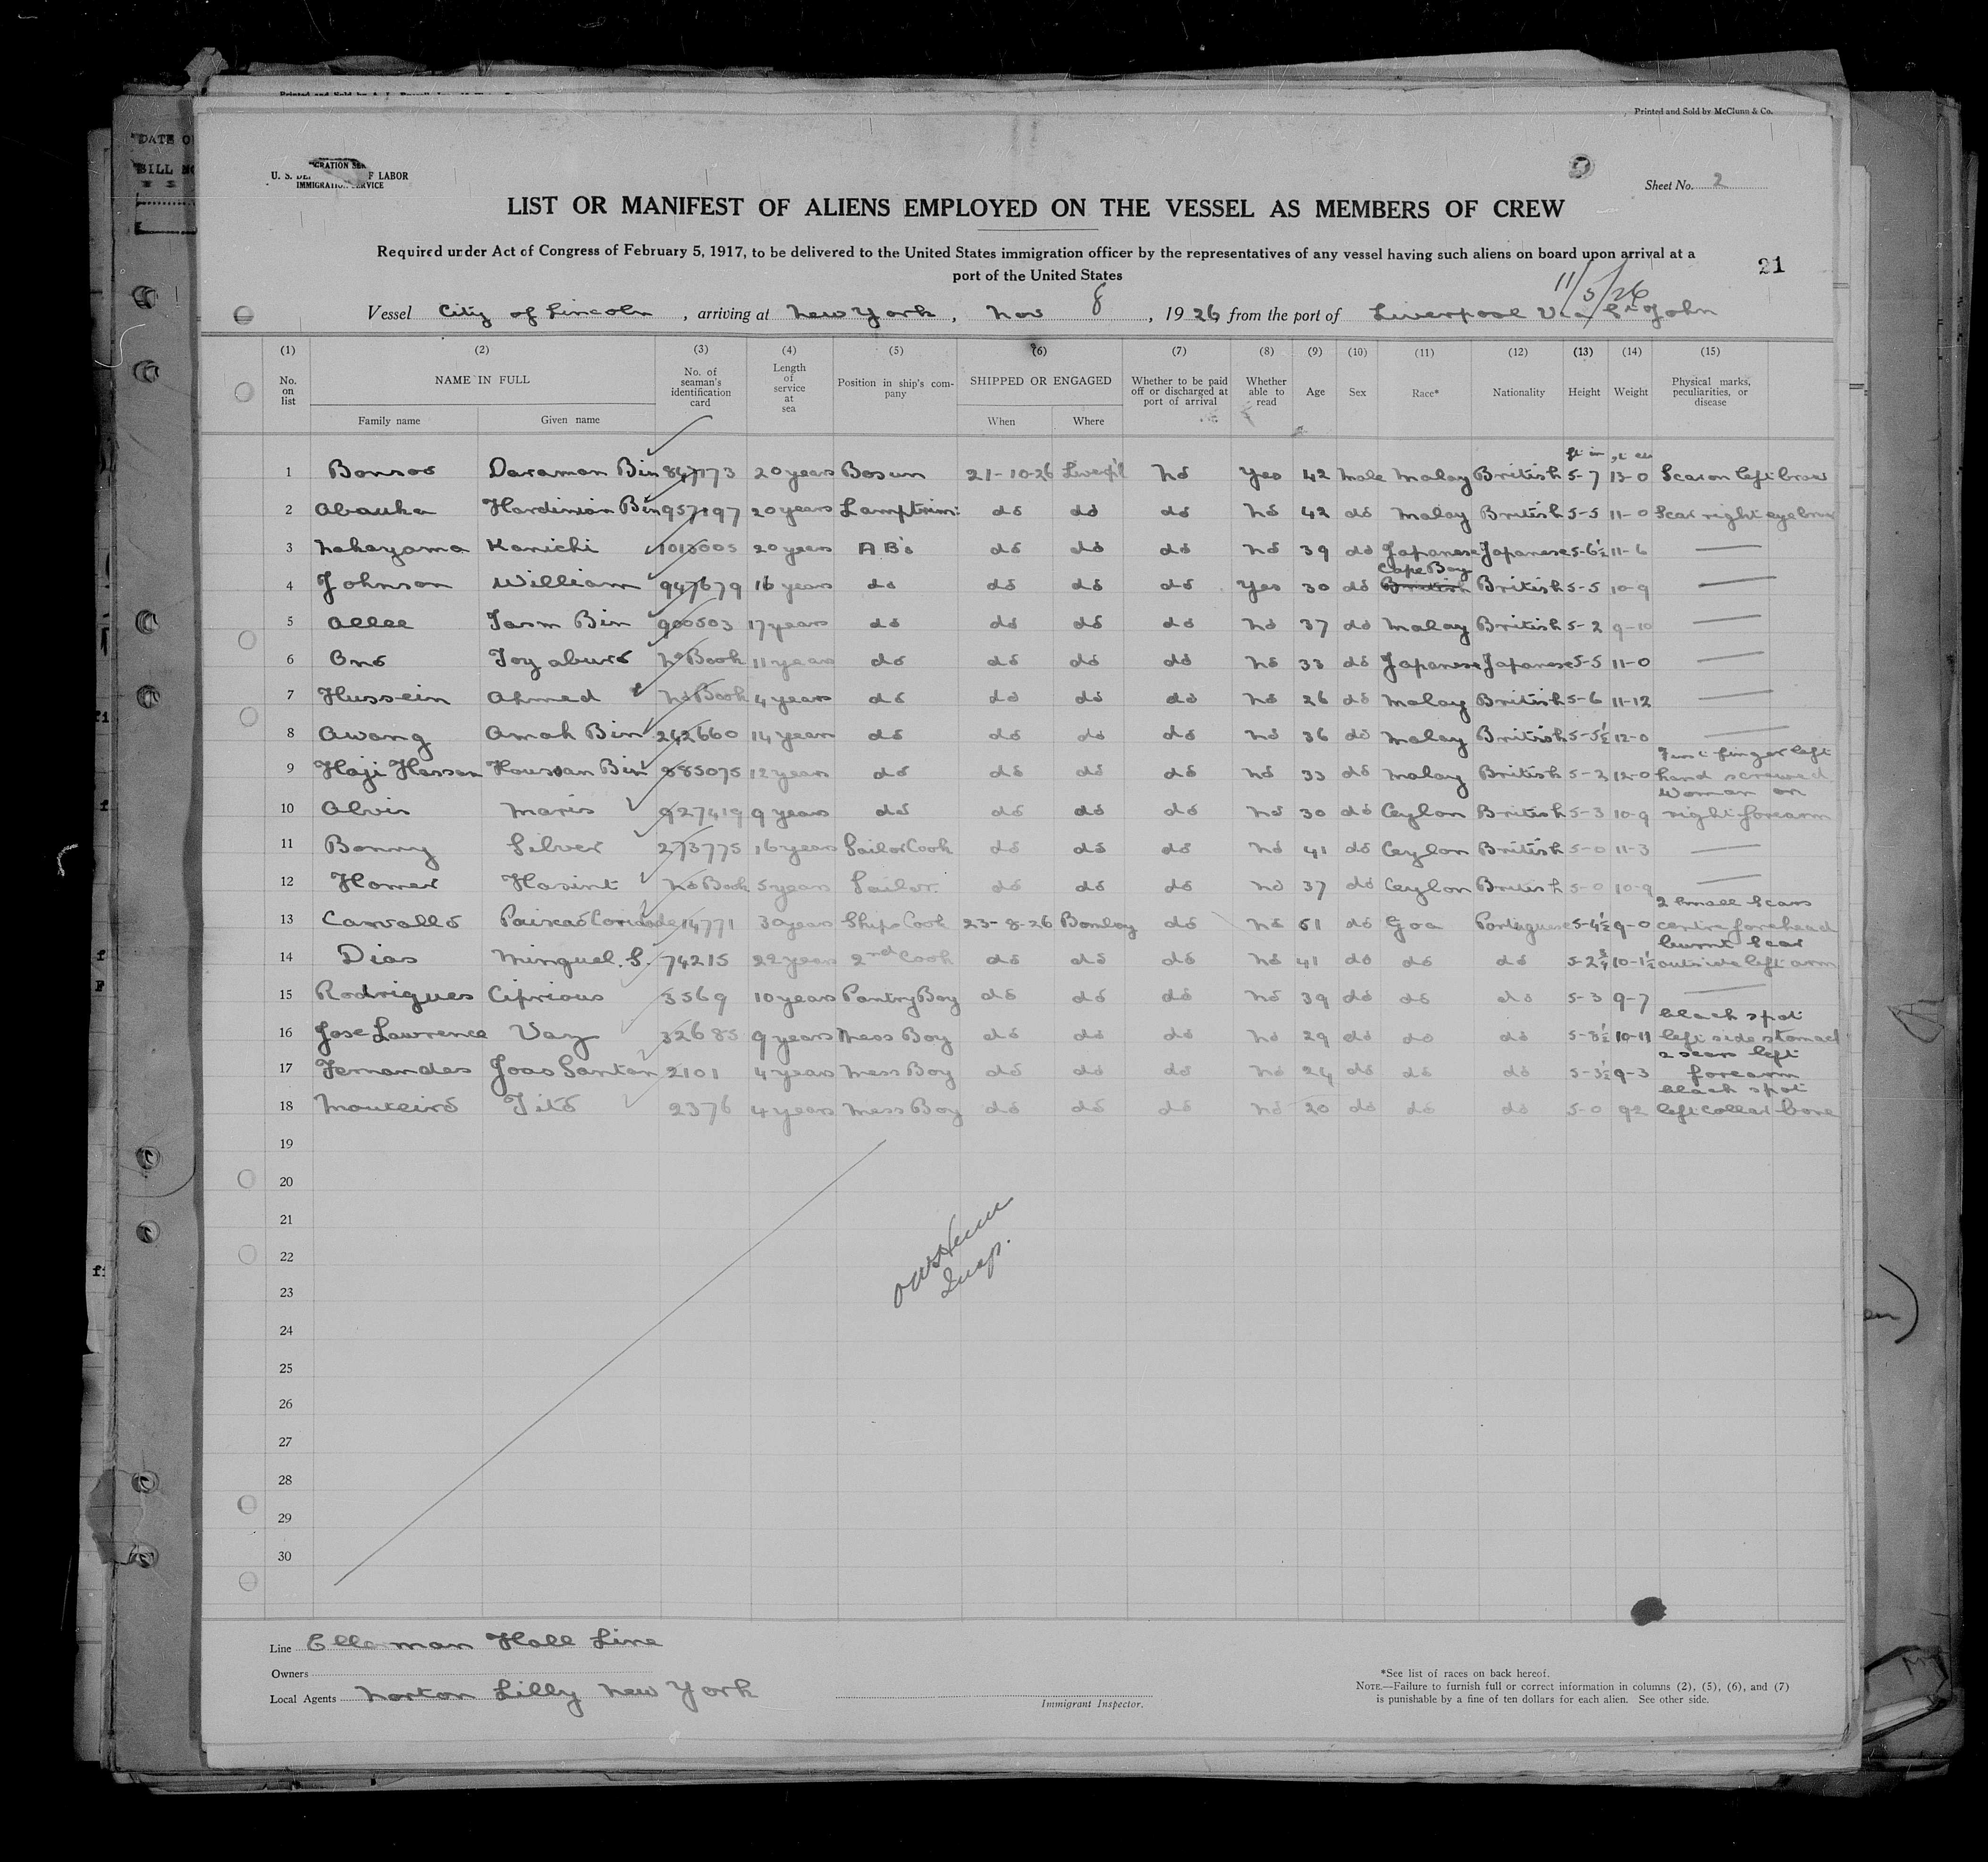 Printed and Sold by McClunn & Co.
DATE O
BILL NO
U. S. DE F LABOR
IMMIGRATION SERVICE
Sheet No. 2
LIST OR MANIFEST OF ALIENS EMPLOYED ON THE VESSEL AS MEMBERS OF CREW
Required under Act of Congress of February 5, 1917, to be delivered to the United States immigration officer by the representatives of any vessel having such aliens on board upon arrival at a
port of the United States
21
11/5/26
Vessel City of Lincoln, arriving at New York, Nov 8, 1926 from the port of Liverpool Via St John
(1) (2) (3) (4) (5) (6) (7) (8) (9) (10) (11) (12) (13) (14) (15)
No. on list NAME IN FULL No. of seaman's identification card Length of service at sea Position in ship's company SHIPPED OR ENGAGED Whether to be paid off or discharged at port of arrival Whether able to read Age Sex Race* Nationality Height Weight Physical marks, peculiarities, or disease
Family name Given name When Where
ft in st
1 Bonsos Daraman Bin 847173 20 years Bosun 21-10-26 Liverp'l No Yes 42 Male Malay British 5-7 13-0 Scar on left brow
2 Abauka Hardinian Bin 957197 20 years Lamptrim: do do do No 42 do Malay British 5-5 11-0 Scar right eyebrow
3 Nakayama Kanichi 1013005 20 years A B's do do do No 39 do Japanese Japanese 5-6½ 11-6 —
4 Johnson William 947679 16 years do do do do Yes 30 do Cape Boy British British 5-5 10-9 —
5 Allee Tasm Bin 900503 17 years do do do do No 37 do Malay British 5-2 9-10 —
6 Ono Toyaburo No Book 11 years do do do do No 33 do Japanese Japanese 5-5 11-0 —
7 Hussein Ahmed No Book 4 years do do do do No 26 do Malay British 5-6 11-12 —
8 Awang Amah Bin 242660 14 years do do do do No 36 do Malay British 5-5½ 12-0 —
9 Haji Hassan Houssan Bin 885075 12 years do do do do No 33 do Malay British 5-2 12-0 First finger left hand screwed
10 Alvis Maris 927419 9 years do do do do No 30 do Ceylon British 5-3 10-9 Woman on right forearm
11 Bonny Silver 273775 16 years Sailor Cook do do do No 41 do Ceylon British 5-0 11-3 —
12 Homer Hasint No Book 5 years Sailor do do do No 37 do Ceylon British 5-0 10-9 —
13 Carvallo 14771 30 years Ships Cook 23-8-26 Bombay do No 51 do Goa Portuguese 5-4½ 9-0 2 small scars centre forehead
14 Dias Minguel. S. 74215 22 years 2nd Cook do do do No 41 do do do 5-2¾ 10-1½ burnt scar outside left arm
15 Rodrigues Ciprious 3569 10 years Pantry Boy do do do No 39 do do do 5-3 9-7 —
16 Jose Lawrence Vaz 32685 9 years Mess Boy do do do No 29 do do do 5-8½ 10-11 black spot left side stomach
17 Fernandes Joao Santan 2101 4 years Mess Boy do do do No 24 do do do 5-3½ 9-3 2 scars left forearm
18 Monteiro Tito 2376 4 years Mess Boy do do do No 20 do do do 5-0 92 black spot left collar bone
19
20
21
22
23
24
25
26
27
28
29
30
Insp.
Line Ellerman Hall Line
Owners
Local Agents Norton Lilly New York
Immigrant Inspector.
*See list of races on back hereof.
NOTE.—Failure to furnish full or correct information in columns (2), (5), (6), and (7)
is punishable by a fine of ten dollars for each alien. See other side.